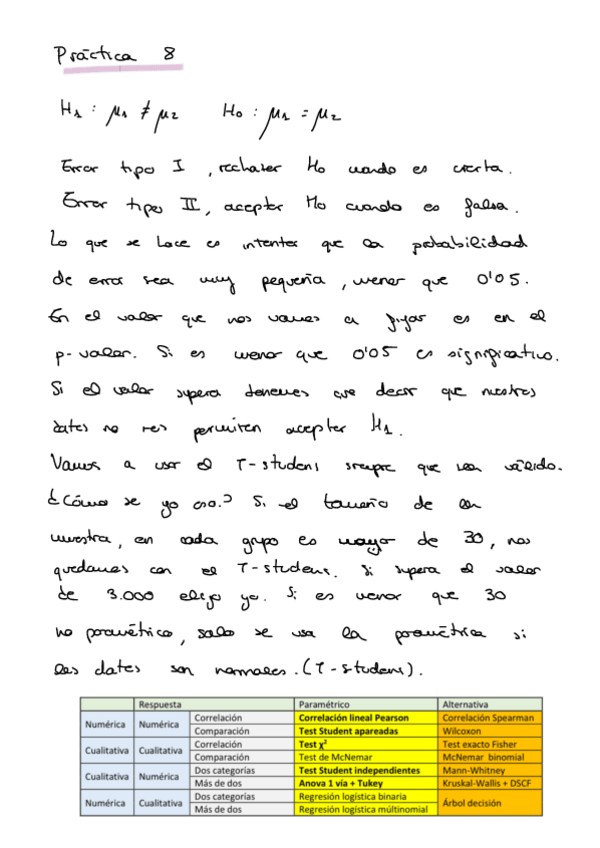 Práctica 8
H₁ : μ₁ ≠ μ₂ H₀ : μ₁ = μ₂
Error tipo I, rechazar H₀ cuando es cierta.
Error tipo II, aceptar H₀ cuando es falsa.
Lo que se hace es intentar que la probabilidad
de error sea muy pequeña, menor que 0'05.
En el valor que nos vamos a fijar es en el
p-valor. Si es menor que 0'05 es significativo.
Si el valor supera tenemos que decir que nuestros
datos no nos permiten aceptar H₁.
Vamos a usar el T-student siempre que sea válido.
¿Cómo se yo eso? Si el tamaño de la
muestra, en cada grupo es mayor de 30, nos
quedamos con el T-student. Si supera el valor
de 3.000 elijo yo. Si es menor que 30
no paramétrico, solo se usa la paramétrica si
los datos son normales. (T-student).
Respuesta Paramétrico Alternativa
Numérica Numérica Correlación Correlación lineal Pearson Correlación Spearman
Comparación Test Student apareadas Wilcoxon
Cualitativa Cualitativa Correlación Test χ² Test exacto Fisher
Comparación Test de McNemar McNemar binomial
Cualitativa Numérica Dos categorías Test Student independientes Mann-Whitney
Más de dos Anova 1 vía + Tukey Kruskal-Wallis + DSCF
Numérica Cualitativa Dos categorías Regresión logística binaria Árbol decisión
Más de dos Regresión logística múltinomial